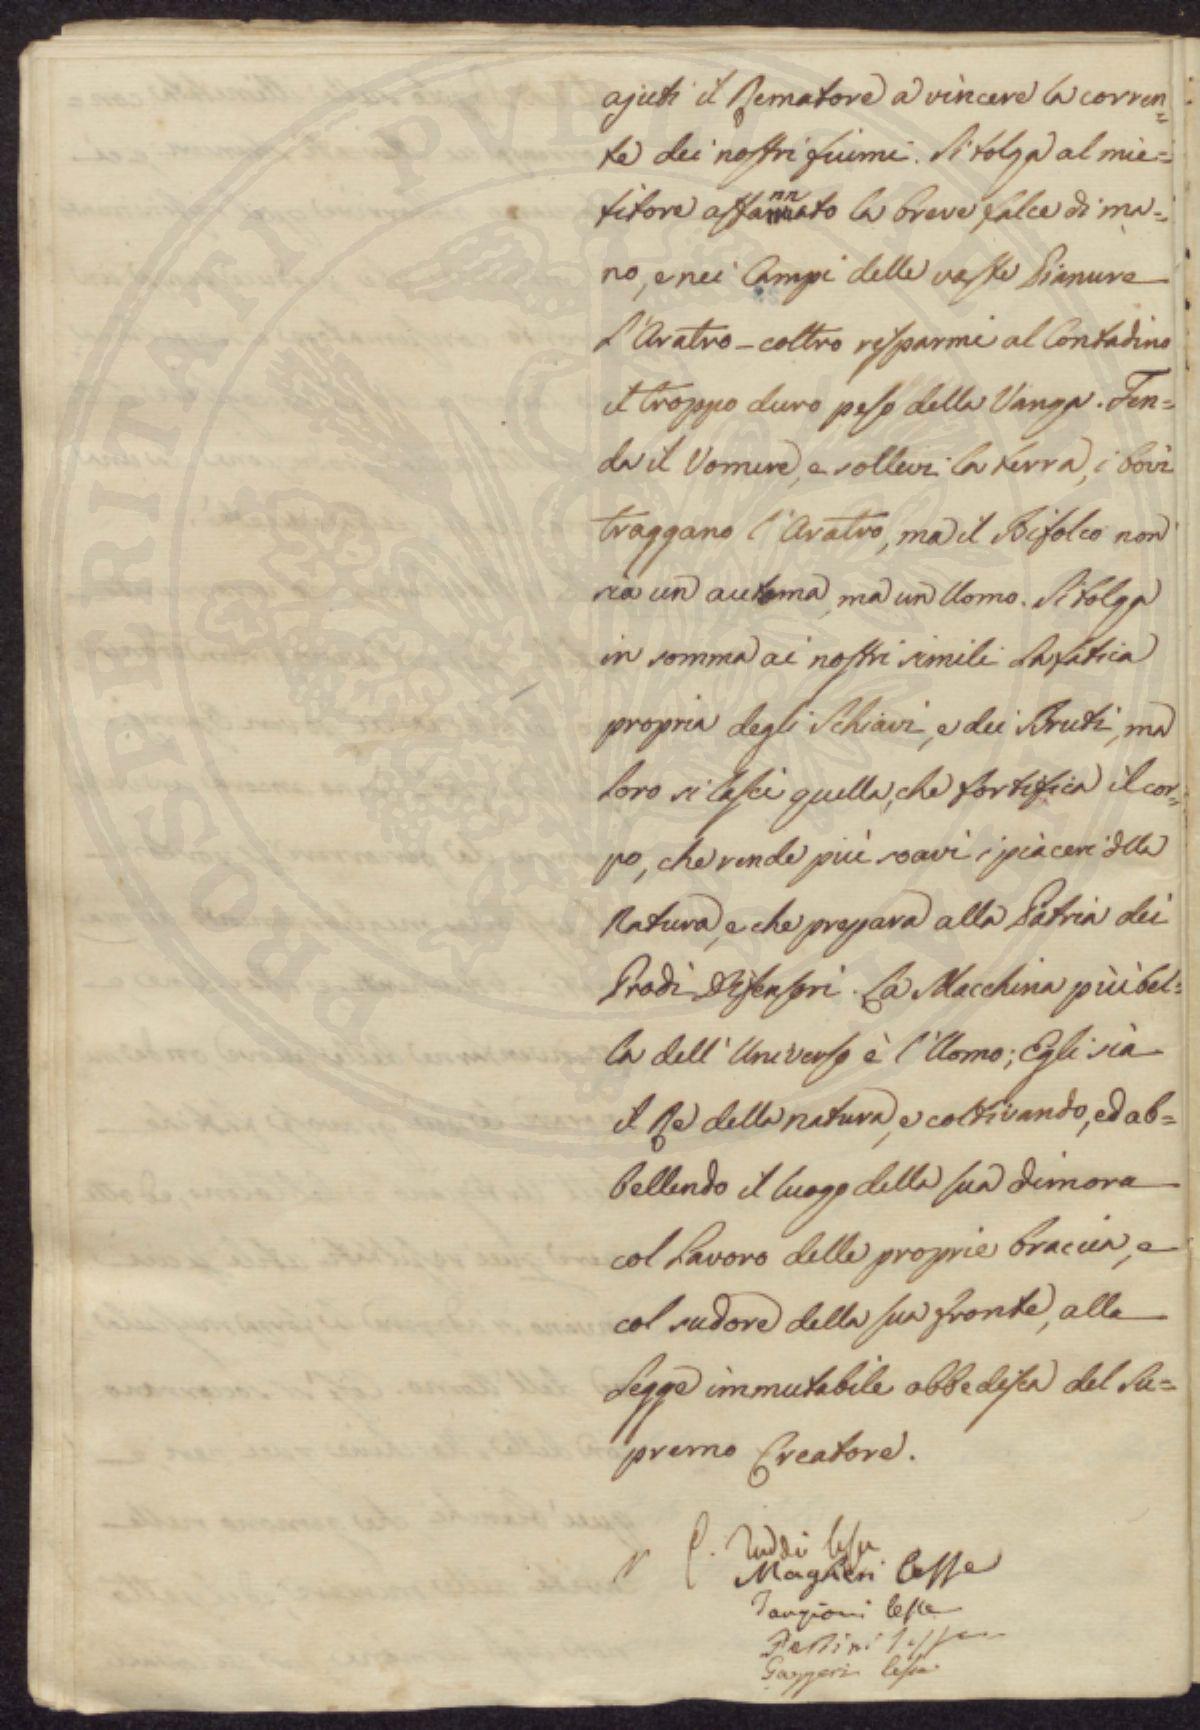 ajuti il Rematore a vincere la corren=
te dei nostri fiumi. Si tolga al mie=
titore affannato la breve falce di ma=
no, e nei Campi delle vaste Pianure
l'Aratro-coltro risparmi al Contadino
il troppo duro peso della Vanga. Fen=
da il Vomere, e sollevi la terra, i bovi
traggano l'Aratro, ma il Bifolco non
sia un automa, ma un Uomo. Si tolga
in somma ai nostri simili la fatica
propria degli Schiavi, e dei Bruti, ma
loro si lasci quella, che fortifica il cor=
po, che rende più soavi i piaceri della
Natura, e che prepara alla Patria dei
Prodi Difensori. La Macchina più bel=
la dell'Universo è l'Uomo; Egli sia
il Re della natura, e coltivando, ed ab=
bellendo il luogo della sua dimora
col Lavoro delle proprie braccia, e
col sudore della sua fronte, alla
Legge immutabile obbedisca del Su=
premo Creatore.
Taddei lesse
Magheri lesse
Targioni lesse
lesse
Gazzeri lesse
PROSPERITATI PVBLICAE